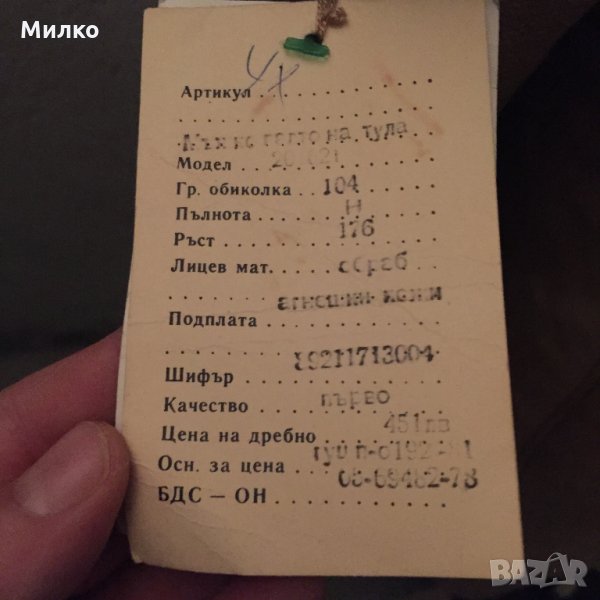 Милко
Артикул
на тула
Модел
Гр. обиколка 104
Пълнота Н
Ръст 176
Лицев мат. обраб
агнешки кожи
Подплата
19211713004
Шифър
Качество първо
Цена на дребно 451лв
Осн. за цена
БДС — ОН 05-69482-78
BAZAR